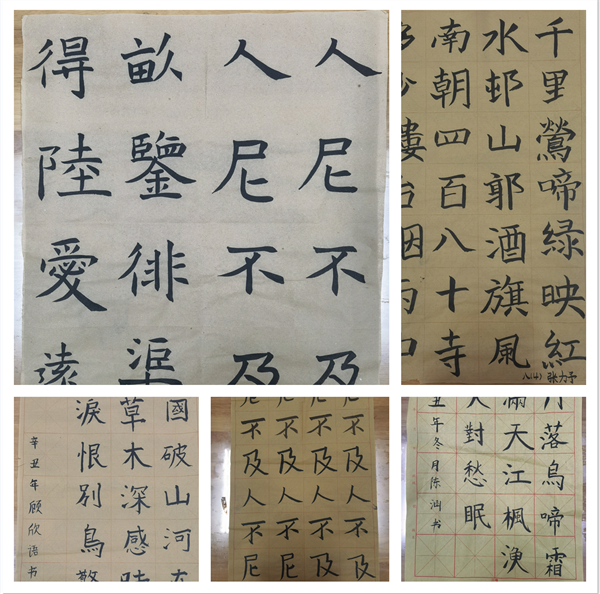 人尼不及
人尼不及
畝鑒徘渠
得陸愛遠
千里鶯啼緑映紅
水邨山郭酒旗風
南朝四百八十寺
少樓台烟雨中
八(4) 张力予
國破山河在
草木深感時
淚恨别鳥驚
辛丑年顾欣诺书
尼不及人不及
尼不及人不及
尼不及人不尼
尼不及人不尼
月落烏啼霜
滿天江楓漁
火對愁眠
丑年冬月陈汕书